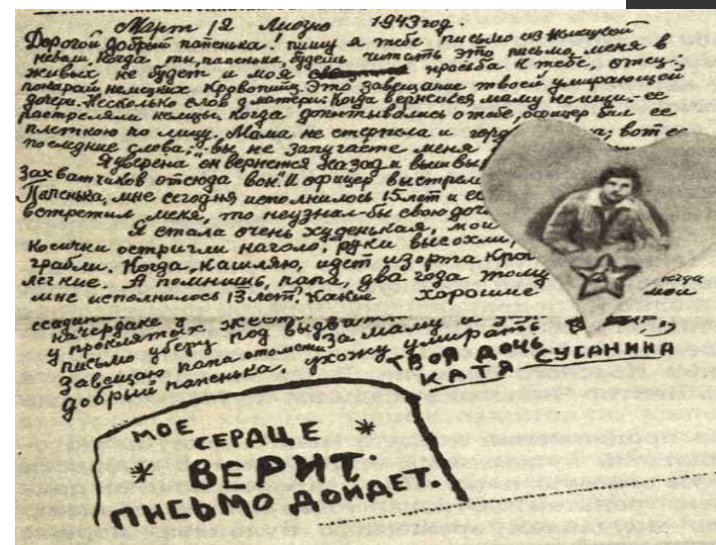 Март 12 Лиозно 1943 год.
Дорогой добрый папенька! пишу я тебе письмо из немецкой
неволи. Когда ты, папенька, будешь читать это письмо, меня в
живых не будет и моя просьба к тебе, отец:
покарай немецких кровопийц. Это завещание твоей умирающей
дочери. Несколько слов о матери. Когда вернешься маму не ищи.-ее
растреляли немцы. Когда допытывались о тебе, офицер бил ее
плеткою по лицу. Мама не стерпела и вот ее
последние слова; вы не запугаете меня
Я уверена он вернется назад и вышвыр
захватчиков отсюда вон." И офицер выстрел
Папенька, мне сегодня исполнилось 15 лет и ес
встретил меня, то неузнал-бы свою доч
Я стала очень худенькая, мои
косички остригли наголо, руки высохли,
грабли. Когда кашляю, идет изо рта кро
легкие. А помнишь, папа, два года тому
мне исполнилось 13 лет. Какие хорошие мои
на чердаке у жест
у проклятых
письмо уберу под
завещаю папа отомсти за маму и
добрый папенька, ухожу умирать
ТВОЯ ДОЧЬ
КАТЯ СУСАНИНА
МОЕ
СЕРДЦЕ
ВЕРИТ.
ПИСЬМО ДОЙДЕТ.